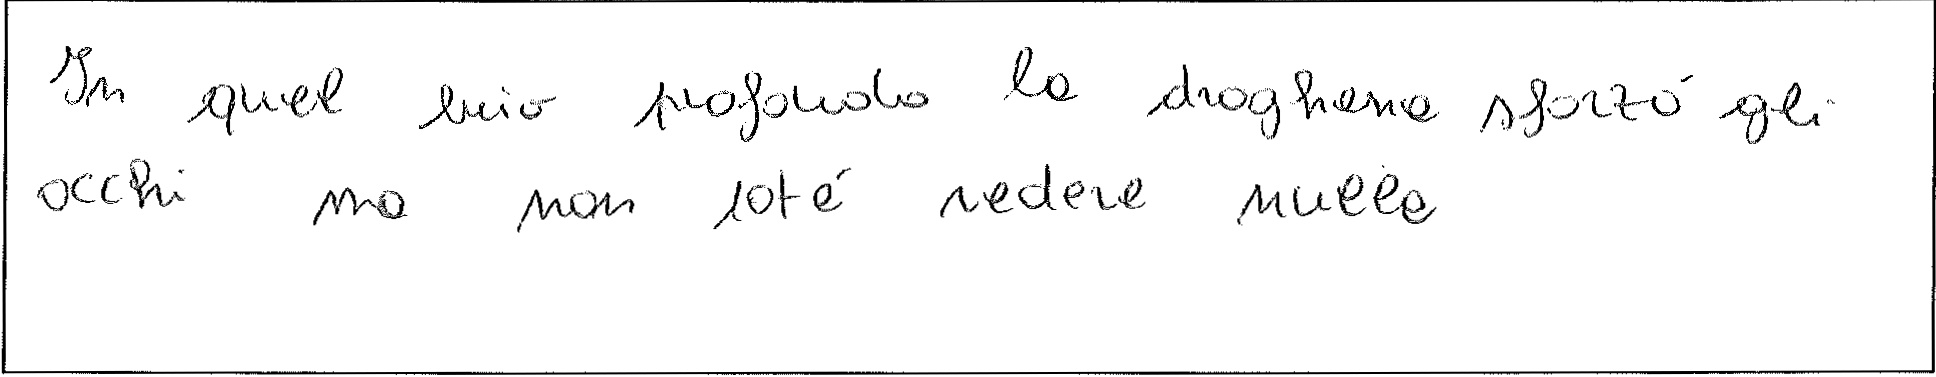 In quel buio profondo la droghena sforzó gli
occhi ma non poté vedere nulla